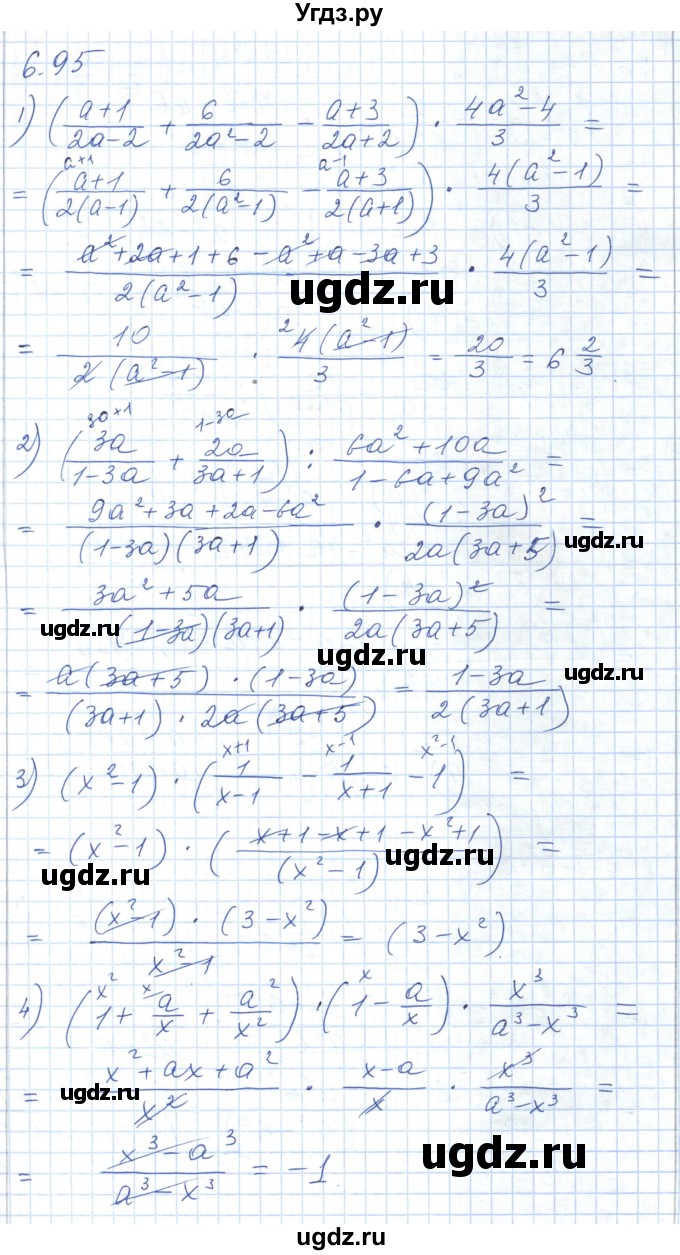 Угдз.ру
6.95
1) ((a+1)/(2a-2) + 6/(2a²-2) - (a+3)/(2a+2)) · (4a²-4)/3 =
a+1 a-1
= ((a+1)/(2(a-1)) + 6/(2(a²-1)) - (a+3)/(2(a+1))) · 4(a²-1)/3 =
= (a²+2a+1+6-a²+a-3a+3)/(2(a²-1)) · 4(a²-1)/3 =
ugdz.ru
= 10/(2(a²-1)) · 2 4(a²-1)/3 = 20/3 = 6 2/3.
3a+1 1-3a
2) (3a/(1-3a) + 2a/(3a+1)) : (6a²+10a)/(1-6a+9a²) =
= (9a²+3a+2a-6a²)/((1-3a)(3a+1)) · (1-3a)²/(2a(3a+5)) =
ugdz.ru
= (3a²+5a)/((1-3a)(3a+1)) · (1-3a)²/(2a(3a+5)) =
ugdz.ru
ugdz.ru
ugdz.ru
= (a(3a+5)·(1-3a))/((3a+1)·2a(3a+5)) = (1-3a)/(2(3a+1))
x+1 x-1 x²-1
3) (x²-1)·(1/(x-1) - 1/(x+1) - 1) =
= (x²-1)·((x+1-x+1-x²+1)/(x²-1)) =
ugdz.ru
ugdz.ru
= ((x²-1)·(3-x²))/(x²-1) = (3-x²).
ugdz.ru
x² x x
4) (1+a/x+a²/x²)·(1-a/x)·x³/(a³-x³) =
= (x²+ax+a²)/x² · (x-a)/x · x³/(a³-x³) =
ugdz.ru
= (x³-a³)/(a³-x³) = -1
ugdz.ru
ugdz.ru